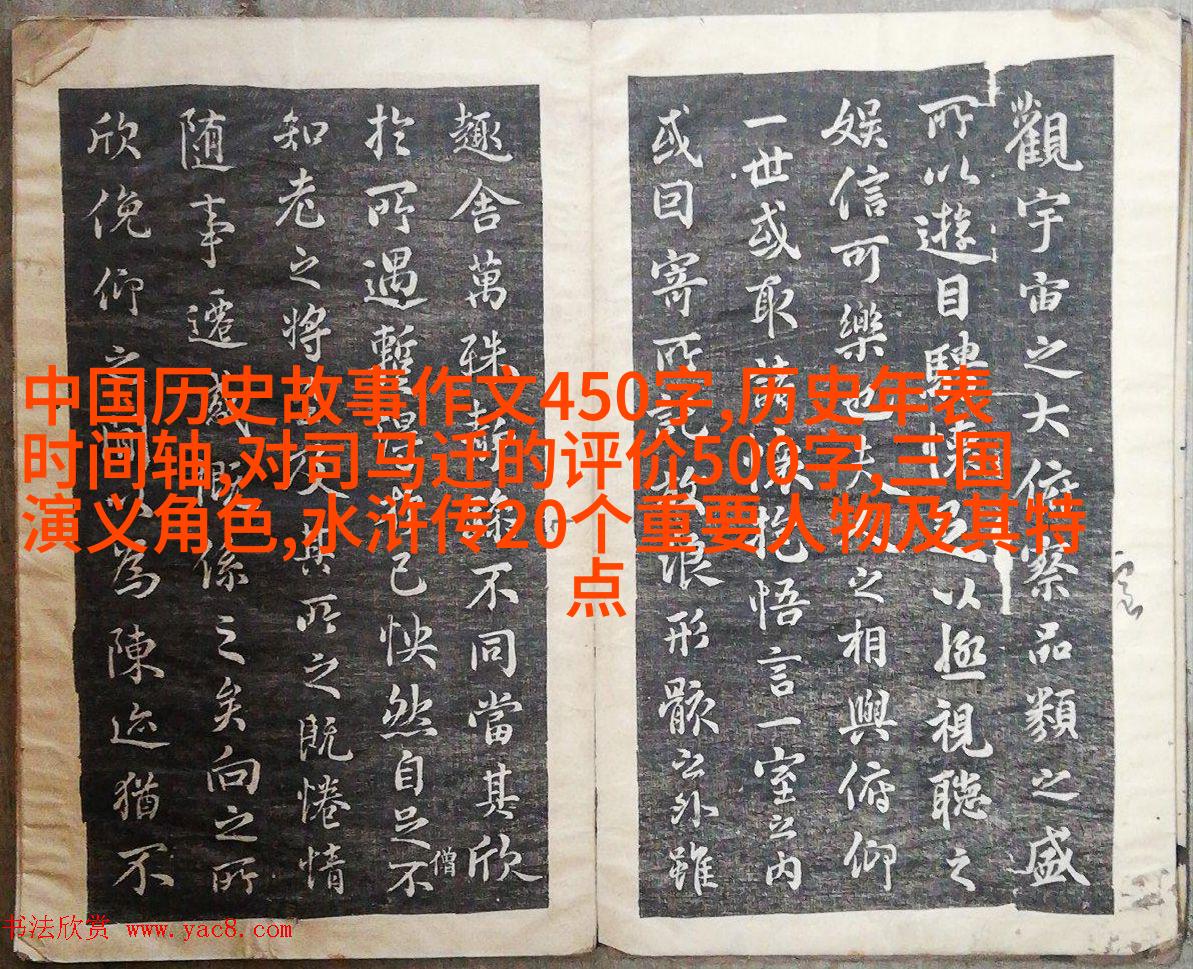 觀宇宙之大俯察品類之盛
所以遊目騁懷足以極視聽之
娛信可樂也夫人之相與俯仰
一世或取諸懷抱悟言一室之內
或因寄所託放浪形骸之外雖
趣舍萬殊靜躁不同當其欣
於所遇暫得於己怏然自足不
僧
知老之將至及其所之既惓情
随事遷感慨係之矣向之所
欣俛仰之間以為陳迹猶不
中国历史故事作文450字,历史年表
时间轴,对司马迁的评价500字,三国
演义角色,水浒传20个重要人物及其特
点
书法欣赏 www.yac8.com